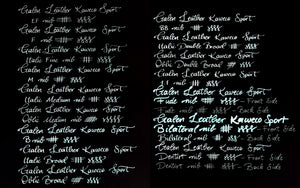 Galen Leather Kaweco Sport
EF nib
Galen Leather Kaweco Sport
F nib
Galen Leather Kaweco Sport
Italic Fine nib
Galen Leather Kaweco Sport
M nib
Galen Leather Kaweco Sport
Italic Medium nib
Galen Leather Kaweco Sport
Oblic Medium nib
Galen Leather Kaweco Sport
B nib
Galen Leather Kaweco Sport
Italic Broad
Galen Leather Kaweco Sport
Oblic Broad
Galen Leather Kaweco Sport
BB nib
Galen Leather Kaweco Sport
Italic Double Broad
Galen Leather Kaweco Sport
Oblic Double Broad
Galen Leather Kaweco Sport
nib
Galen Leather Kaweco Sport
Fude nib Front Side
Fude nib Back Side
Galen Leather Kaweco Sport
Bilateral nib Front Side
Bilateral nib Back Side
Galen Leather Kaweco Sport
Dentist nib Front Side
Dentist nib Back Side